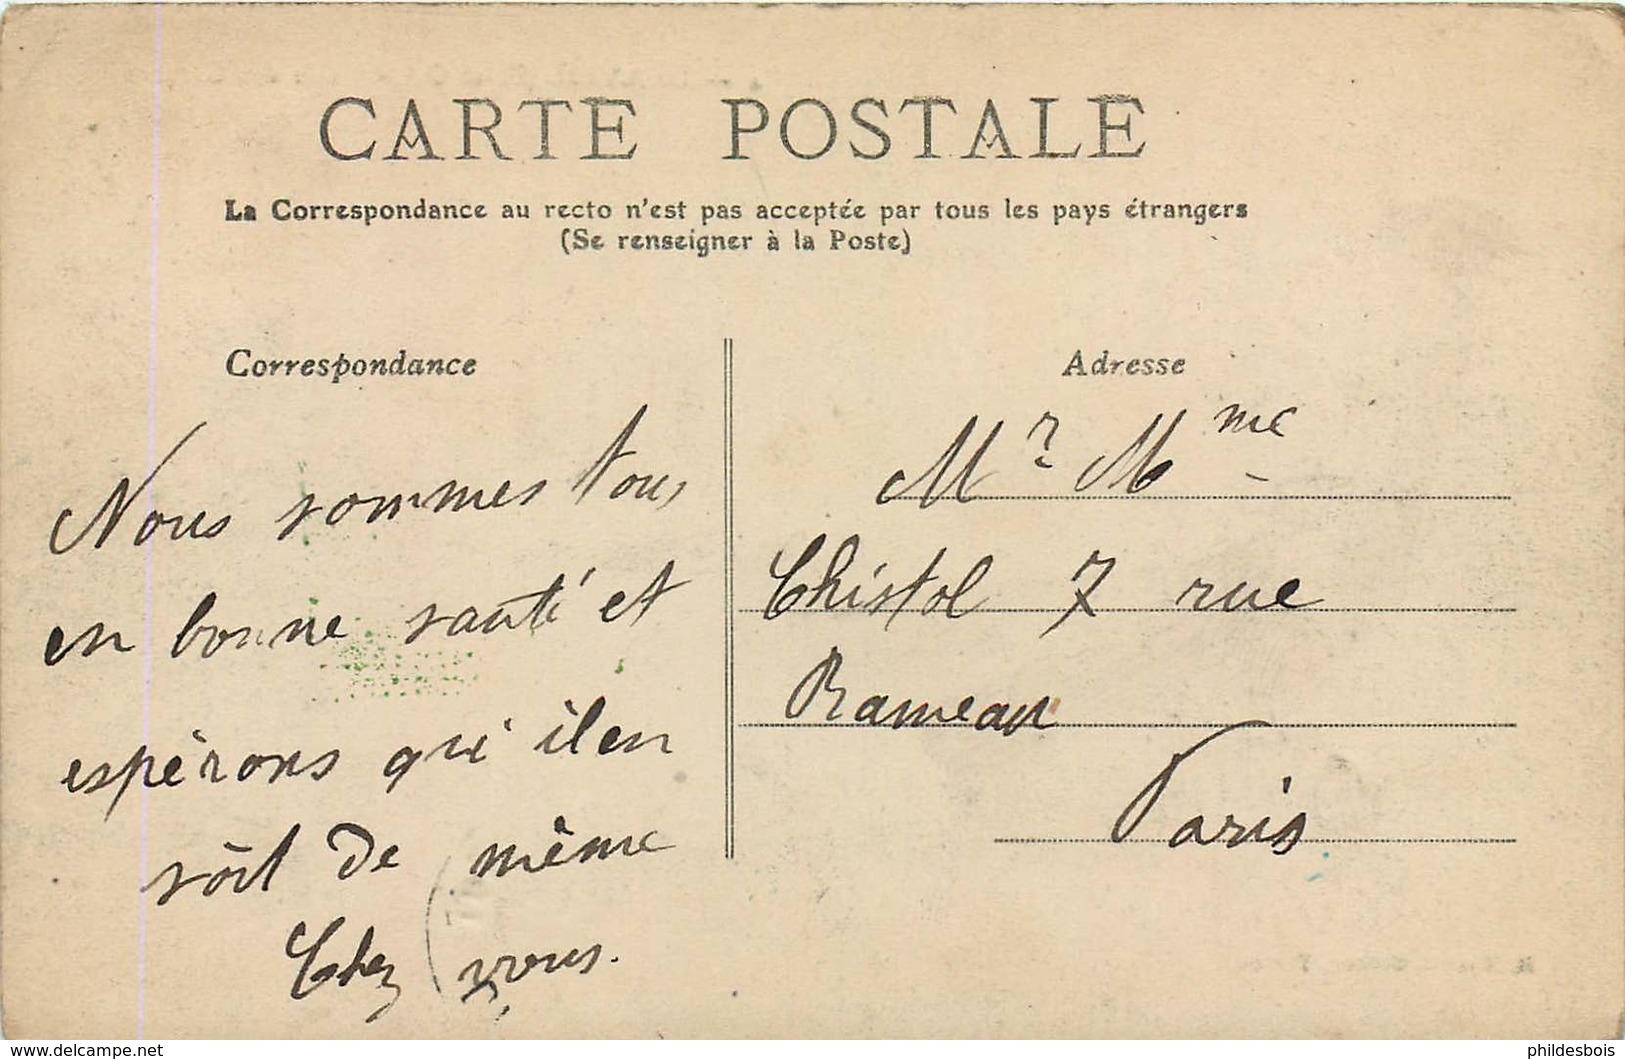 CARTE POSTALE
La Correspondance au recto n'est pas acceptée par tous les pays étrangers
(Se renseigner à la Poste)
Correspondance
Nous sommes tous
en bonne santé et
espèrons qui il en
sôit de même
Chez vous.
Adresse
Mr Mme
Chistol 7 rue
Rameau
Paris
www.delcampe.net
phildesbois